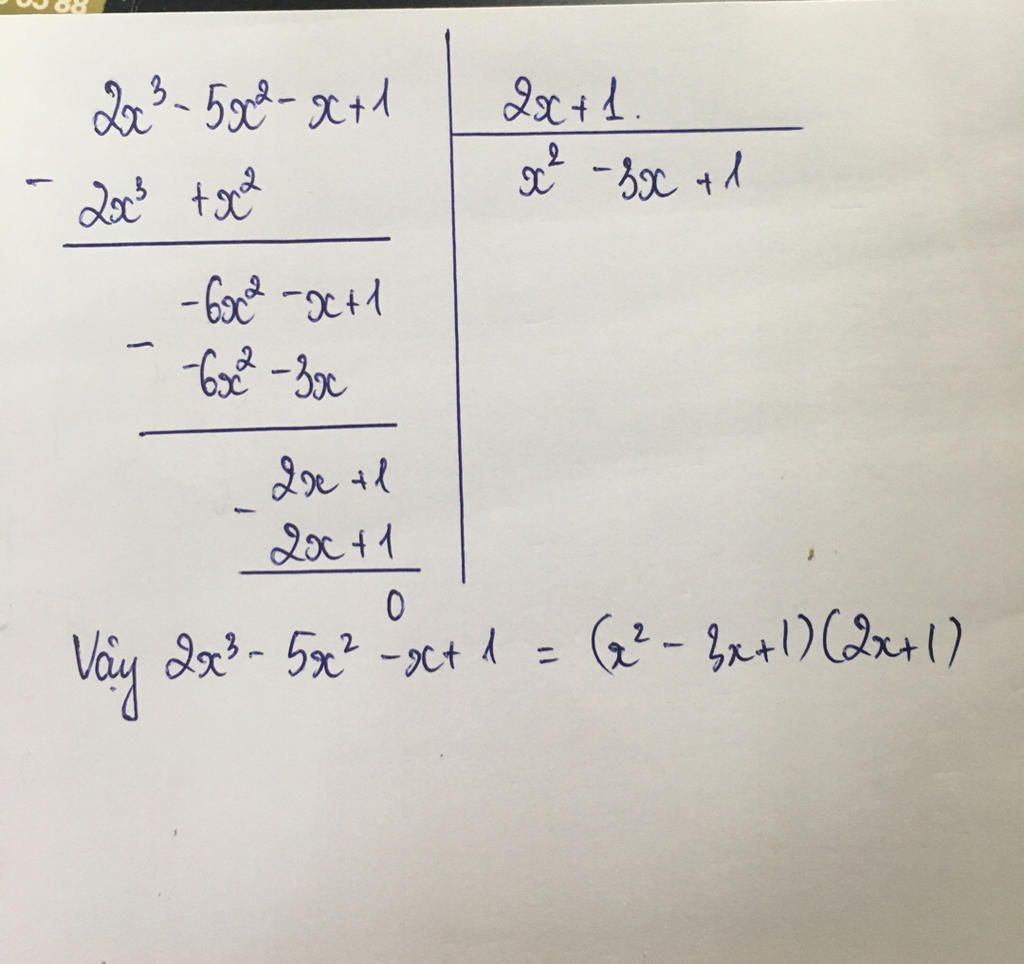 2x³ - 5x² - x + 1 | 2x + 1.
- 2x³ + x² | x² - 3x + 1
-6x² - x + 1
- -6x² - 3x
2x + 1
- 2x + 1
0
Vậy 2x³ - 5x² - x + 1 = (x² - 3x + 1)(2x + 1)